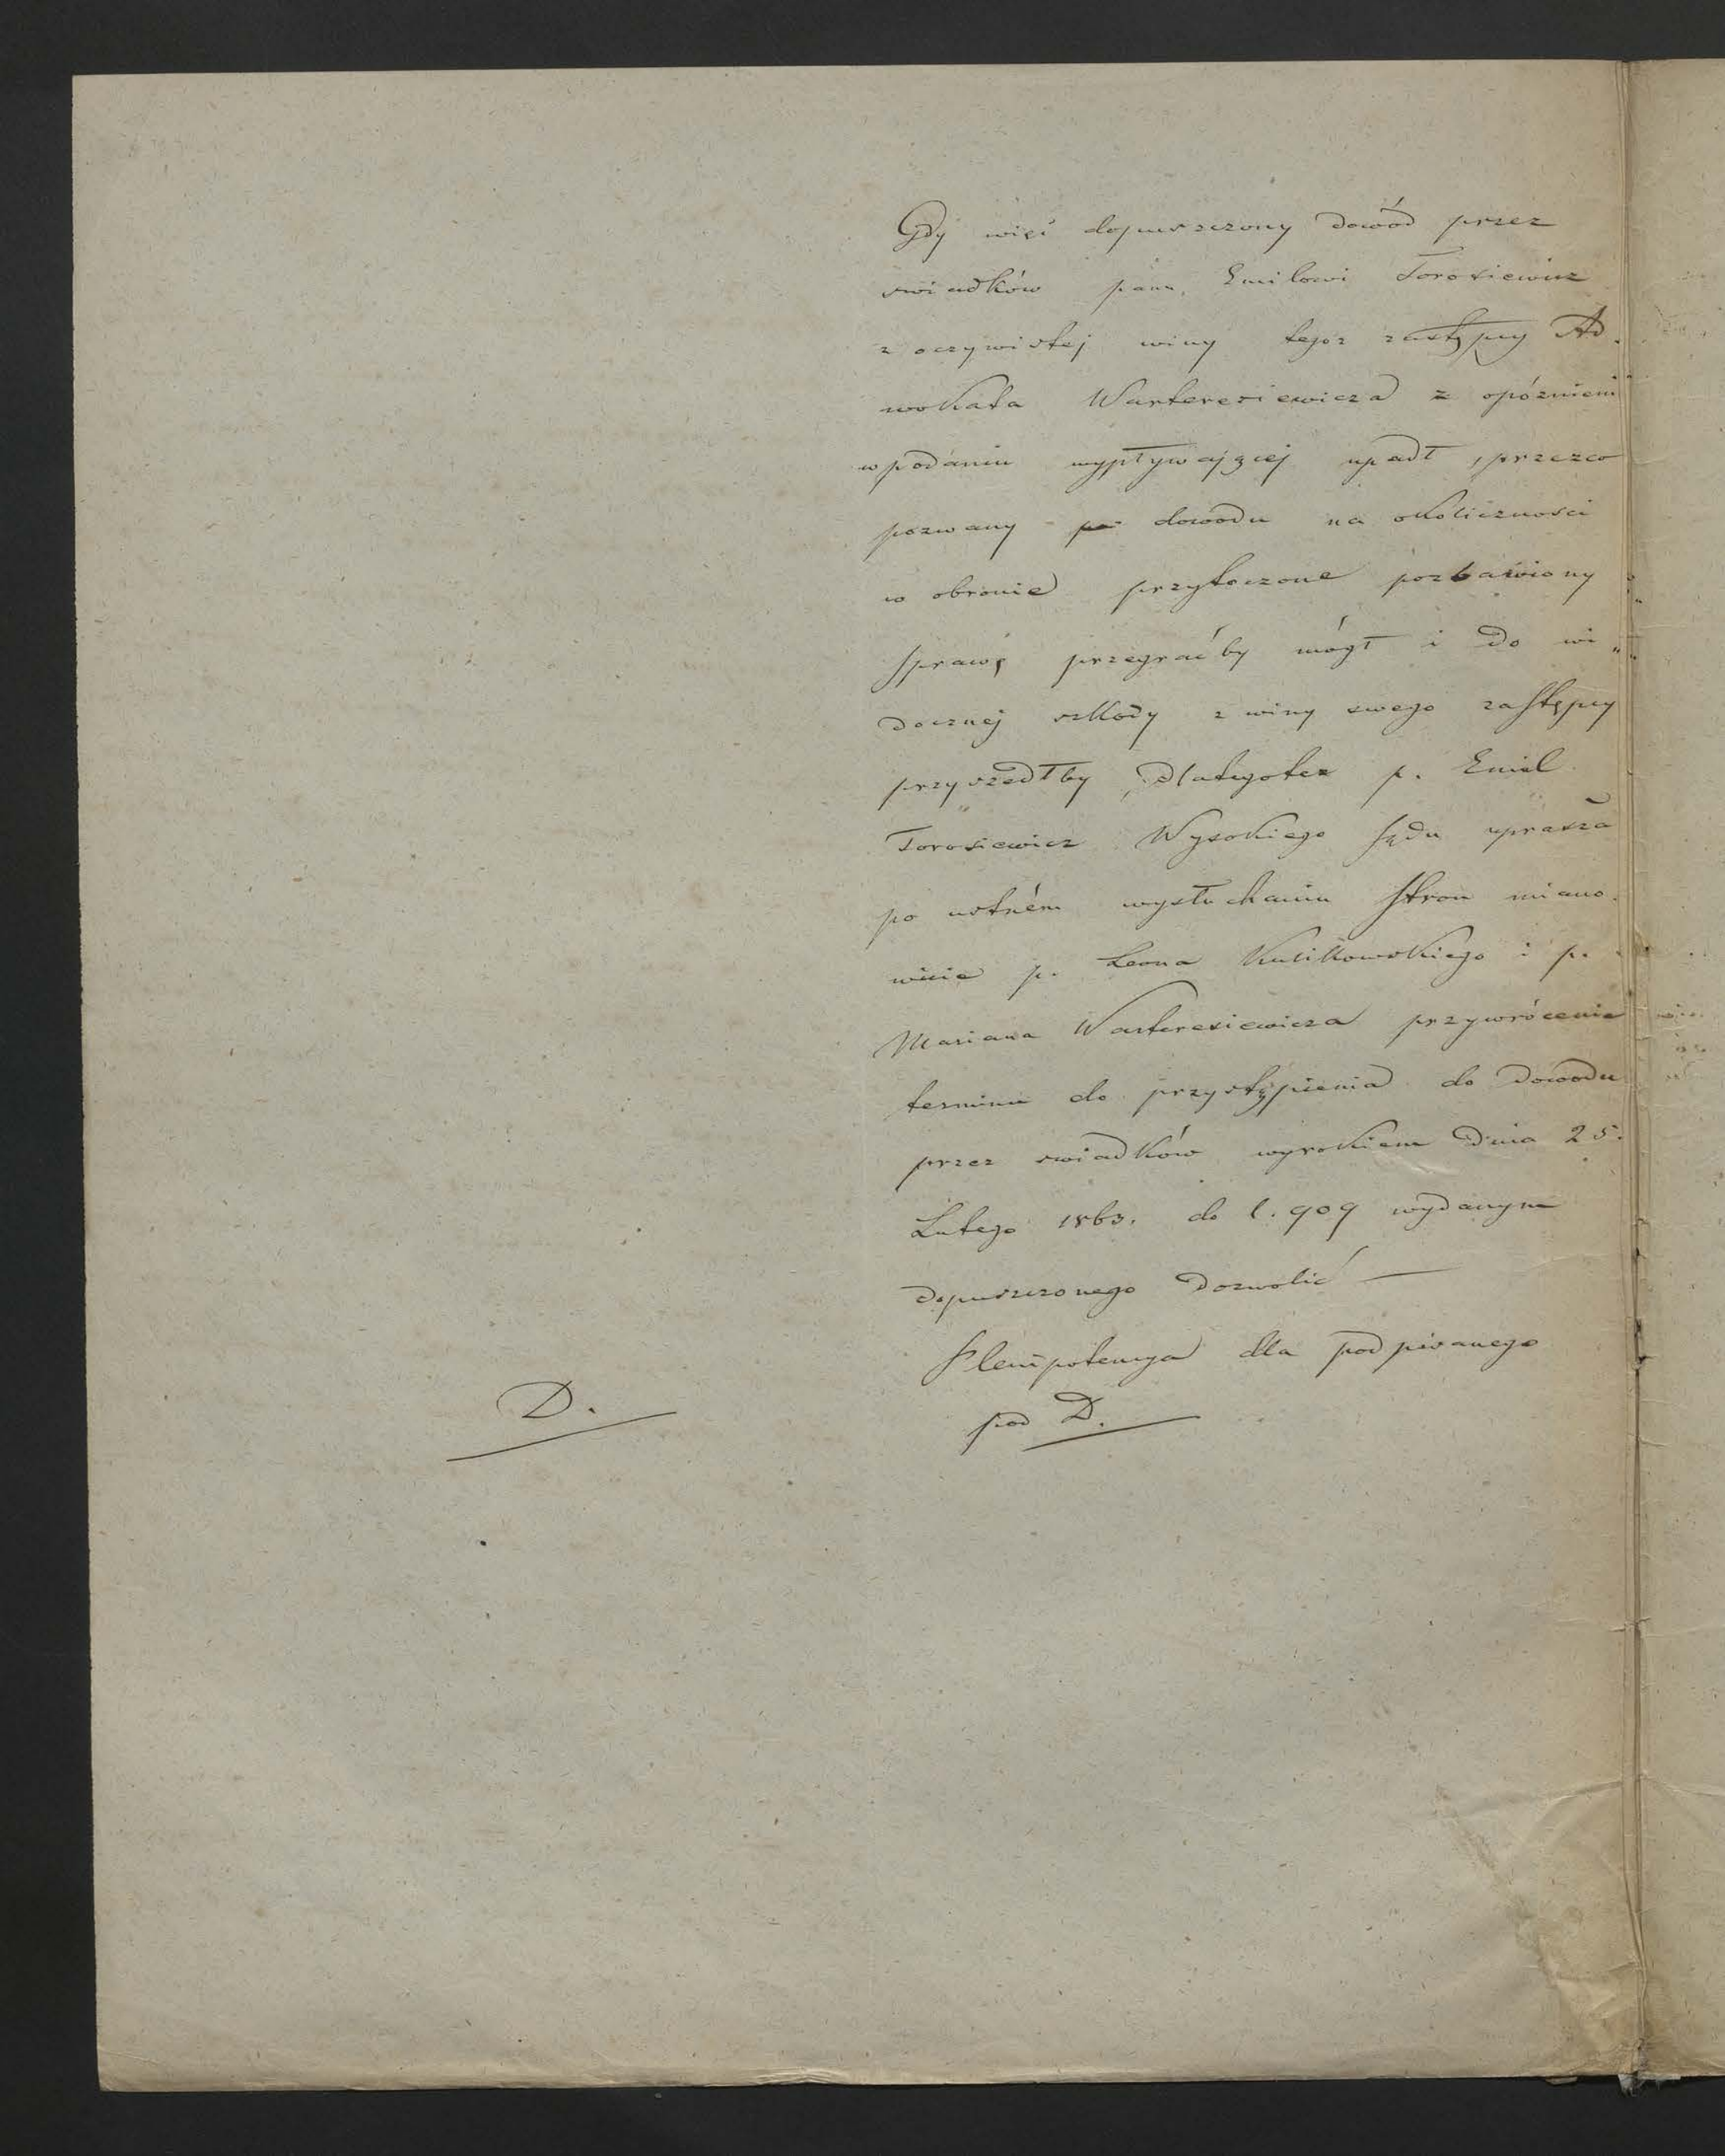 Gdy więc dopuszczony dowód przez
swiadków panu Emilowi Torosiewicz
z oczywistej winy tegoż zastępcy Ad.
wokata Warteresiewicza z opóźnieni
w podaniu wypływającej upadł, przezco
pozwany dowodu na okoliczności
w obronie przytoczone pozbawiony
sprawę przegraćby mógł i do wi„
docznej szkody z winy swego zastępcy
przyszedłby, dlategoteż p. Emil
Torosiewicz Wysokiego Sądu uprasza
po ustném wysłuchaniu stron miano.
wicie p. Leona Kulikowskiego i p.
Mariana Warteresiewicza przywrócenie
terminu do przystąpienia do dowodu
przez swiadków wyrokiem dnia 25.
Lutego 1863. do l. 909 wydanym
dopuszczonego dozwolić —
Plenipotencya dla podpisanego
pod D.
D.